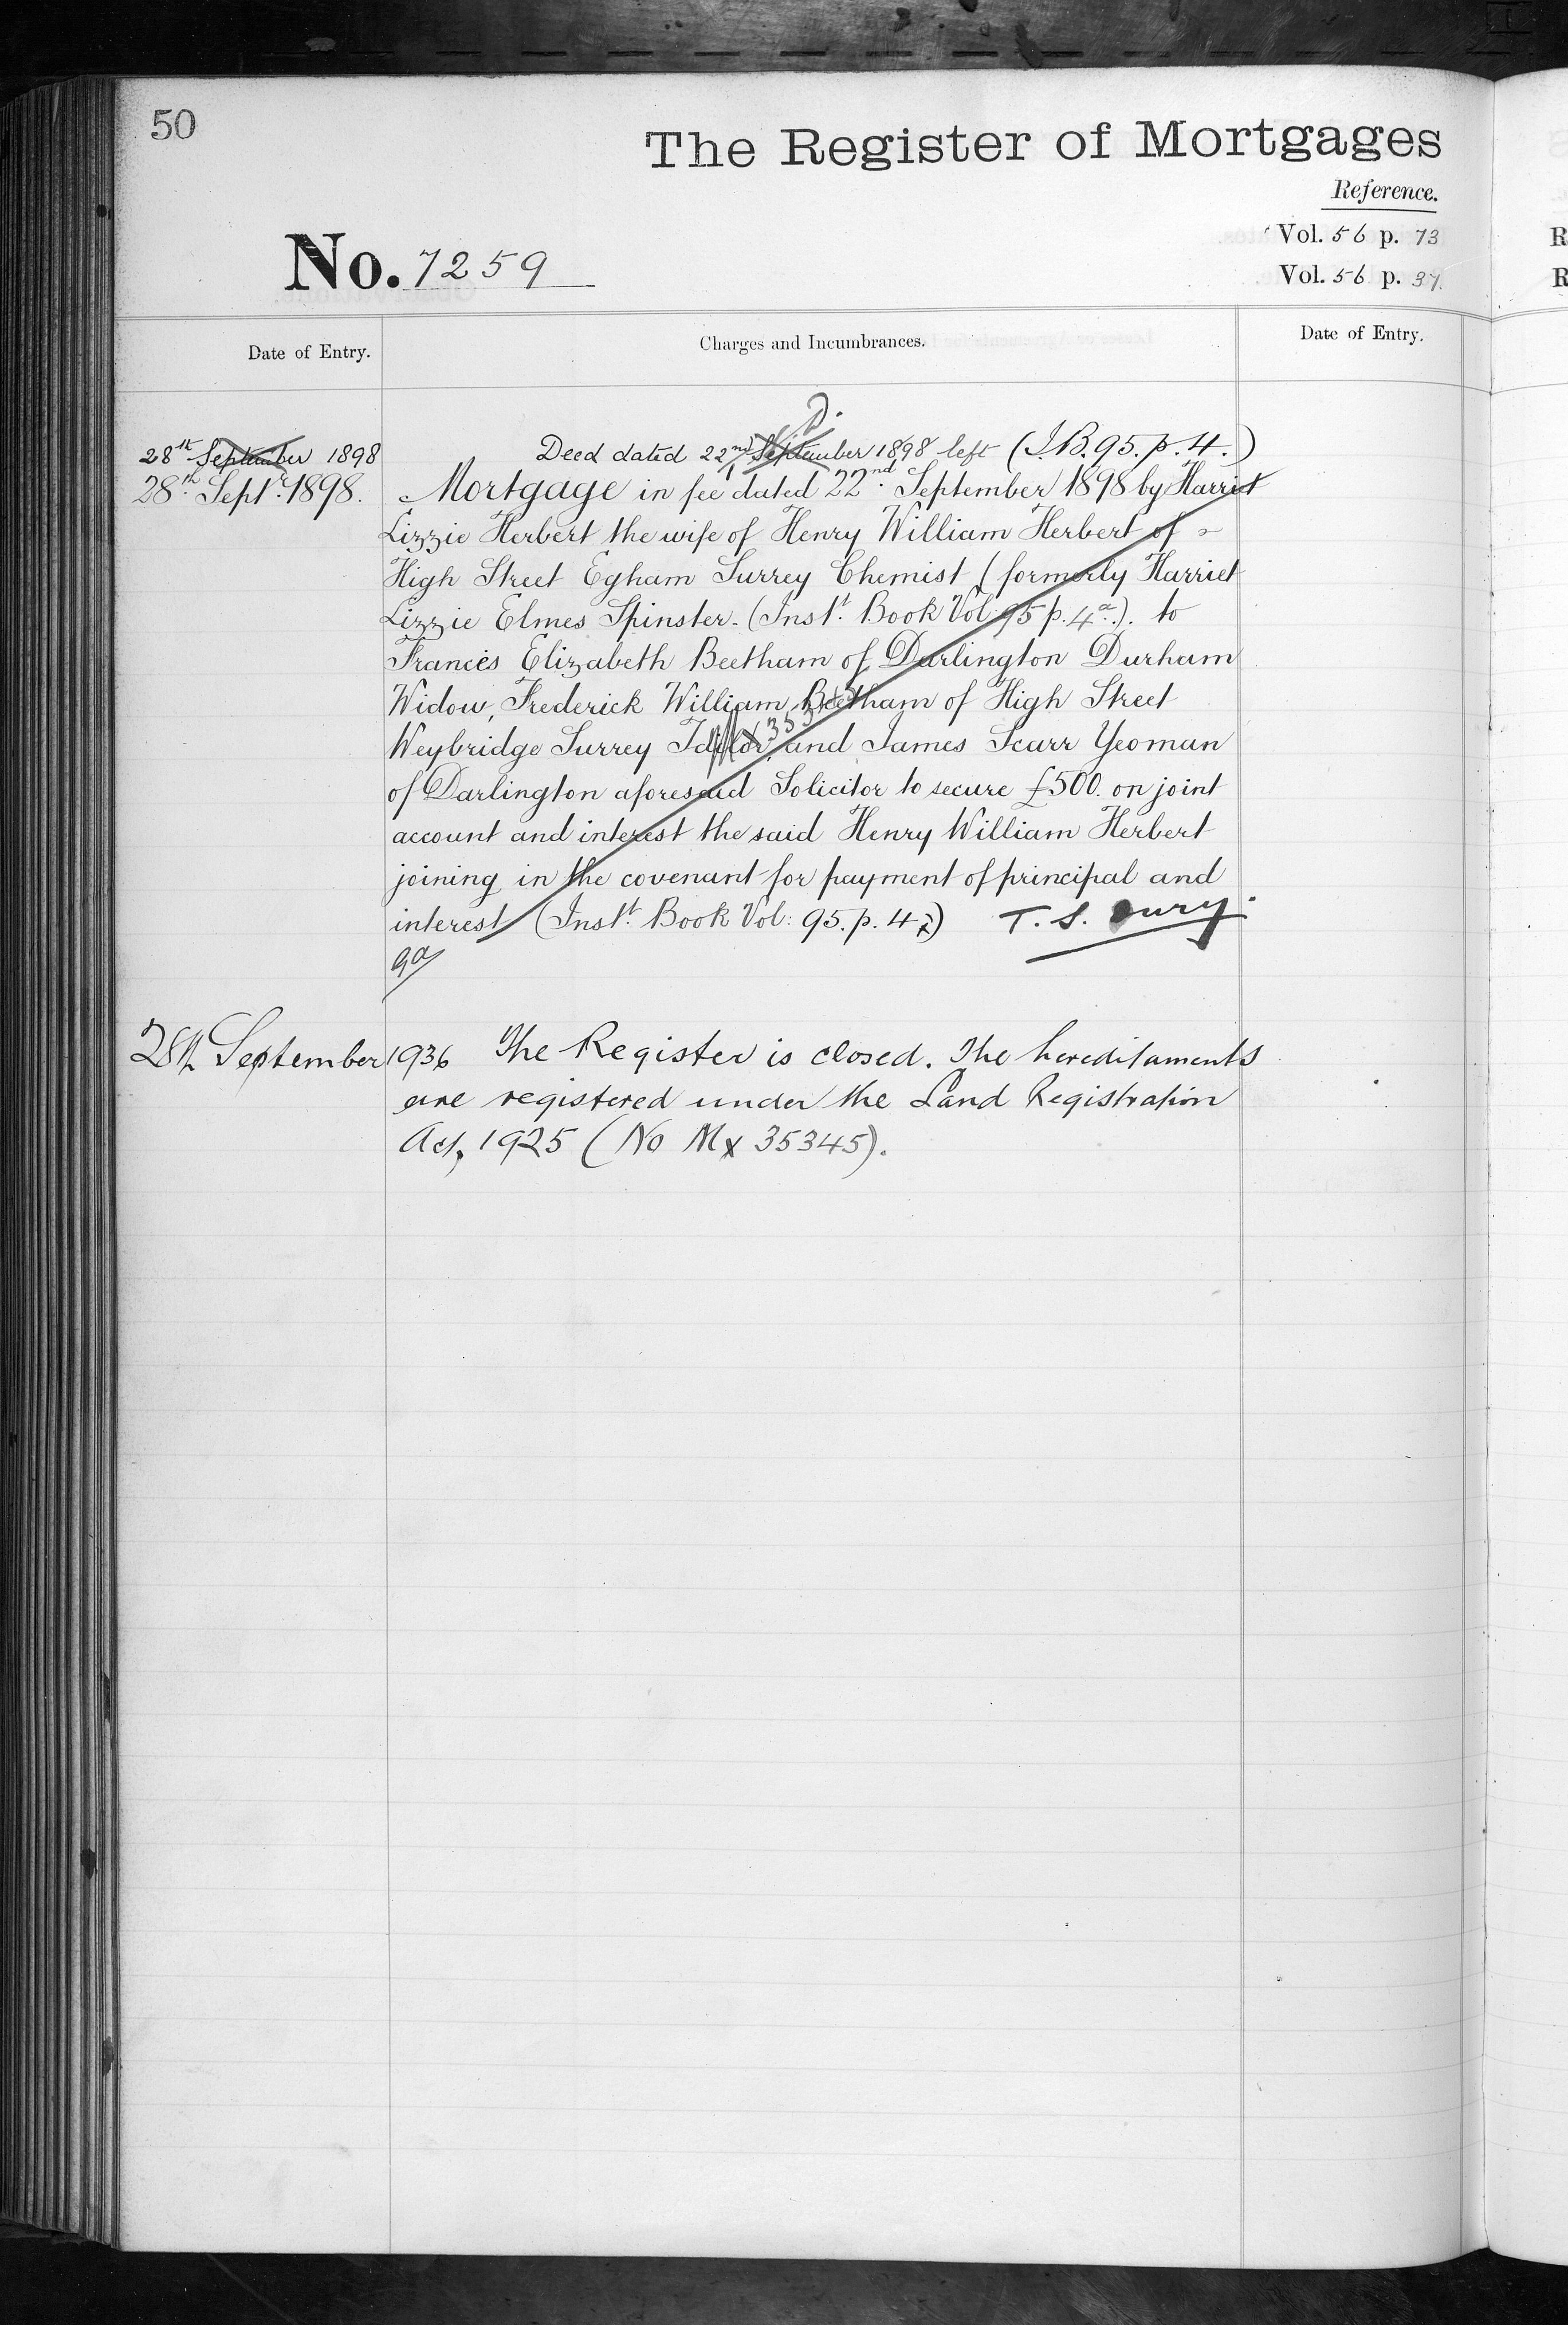 50
The Register of Mortgages
Reference.
No. 7259
Vol. 56 p. 73
Vol. 56 p. 37
Date of Entry.
Charges and Incumbrances.
Date of Entry.
28th September 1898 Deed dated 22nd September 1898 left (I.B. 95. p. 4.)
28th Septr. 1898. Mortgage in fee dated 22nd September 1898 by Harriet
Lizzie Herbert the wife of Henry William Herbert of
High Street Egham Surrey Chemist (formerly Harriet
Lizzie Elmes Spinster. (Instt. Book Vol: 95 p. 4a.). to
Frances Elizabeth Beetham of Darlington Durham
Widow, Frederick William Beetham of High Street
Weybridge Surrey Tailor, and James Scarr Yeoman
of Darlington aforesaid Solicitor to secure £500. on joint
account and interest the said Henry William Herbert
joining in the covenant for payment of principal and
interest (Instt. Book Vol: 95. p. 4) T. S.
9a
28th September 1936 The Register is closed. The hereditaments
are registered under the Land Registration
Act, 1925 (No Mx 35345).